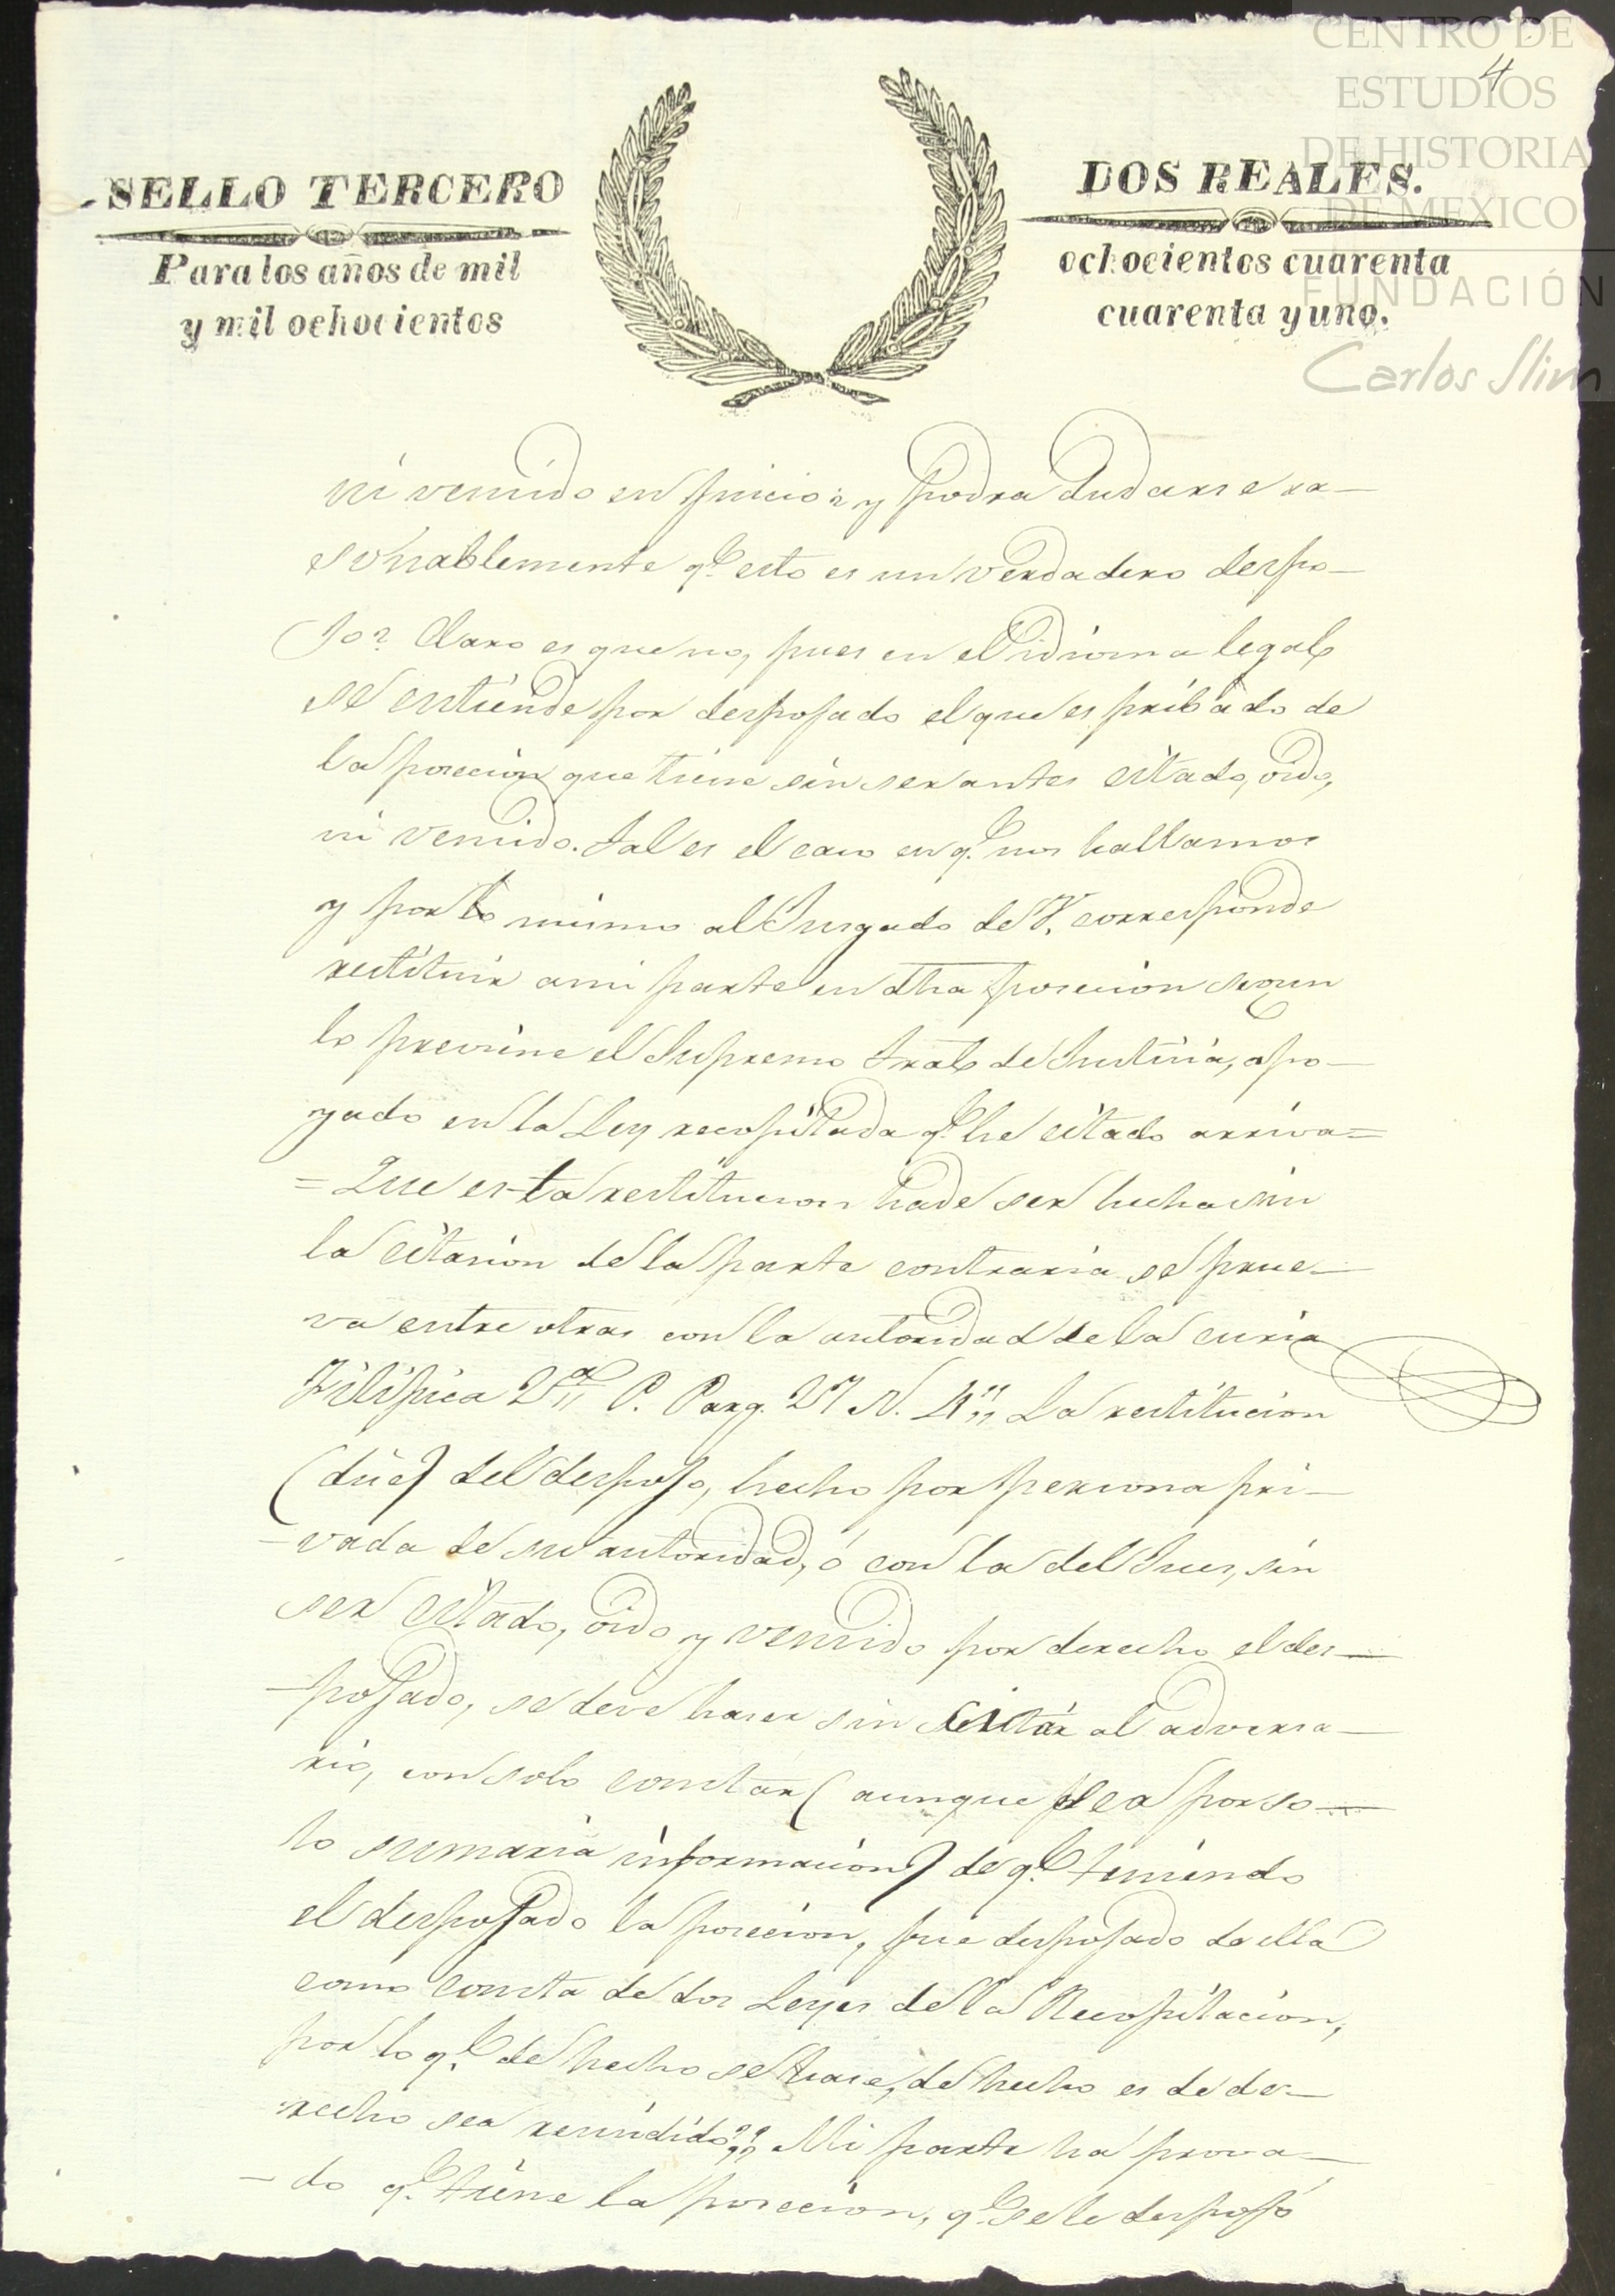 CENTRO DE
ESTUDIOS
DE HISTORIA
DE MEXICO
FUNDACIÓN
Carlos Slim
4
SELLO TERCERO
DOS REALES.
Para los años de mil
ochocientos cuarenta
y mil ochocientos
cuarenta y uno.
ni vencido en juicio? y podra dudarse ra-
sonablemente q.e esto es un verdadero despo-
jo? Claro es que no, pues en el idioma legal
se entiende por despojado el que es pribado de
la posecion que tiene sin ser antes citado, oido,
ni vencido. Tal es el caso en q.e nos hallamos
y por lo mismo al Jusgado de V. corresponde
restituir a mi parte en dha posecion segun
lo previene el Supremo Tral de Justicia, apo-
yado en la Ley recopilada q.e he citado arriva=
=Que esta restitucion ha de ser hecha sin
la citacion de la parte contraria se prue-
va entre otras con la autoridad de la curia
Filipica 2.a P. Parg. 27 N. 4"" La restitucion
(dice) del despojo, hecho por persona pri-
-vada de su autoridad, ó con la del Jues, sin
ser citado, oido y vencido por derecho el des-
-pojado, se deve haser sin citar al adversa-
rio, con solo constar (aunque sea por so-
lo sumaria informacion) de q.e teniendo
el despojado la posecion, fue despojado de ella
como consta de dos Leyes de la Recopilacion,
por lo q.e de hecho se hase, de hecho es de de-
recho sea rescindido"" Mi parte ha prova-
-do q.e tiene la posecion, q.e se le despojó